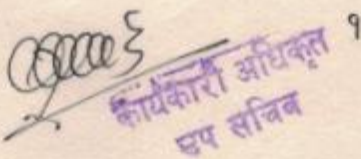 १
कार्यकारी अधिकृत
उप सचिव